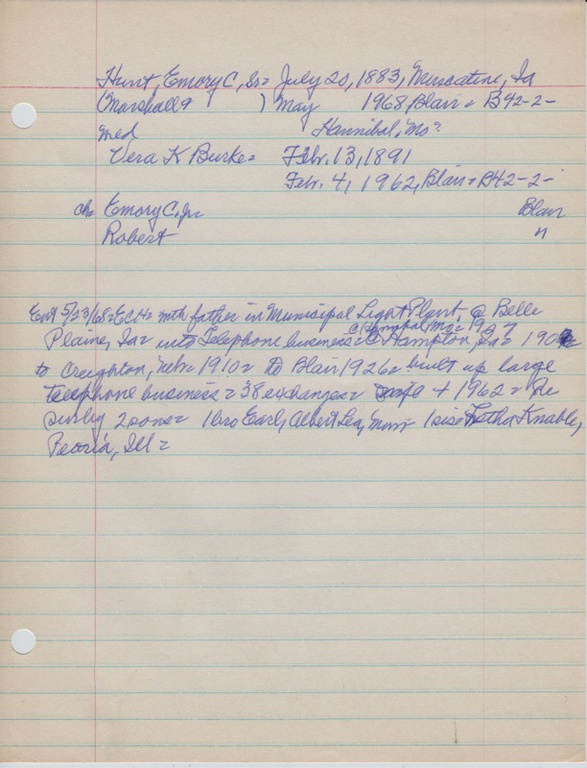 Hunt, Emory C, Sr = July 20, 1883, Muscatine, Ia
(Marshall & ) May 1968, Blair = B42-2-
med Hannibal, Mo?
Vera K Burke = Feb. 13, 1891
Feb. 4, 1962, Blair = B42-2-
ch Emory C, Jr Blair
Robert "
Ent 5/23/68 = ECH = with father in Municipal Light Plant, @ Belle
@ Hannibal, Mo = 1907
Plaine, Ia = into Telephone business = Hampton, Ia =
to Creighton, Neb = 1910 = to Blair 1926 = built up large
telephone business = 38 exchanges = + 1962 = He
survby 2 sons = 1 bro Earl, Albert Lea, Minn 1 sis = Knable,
Peoria, Ill =